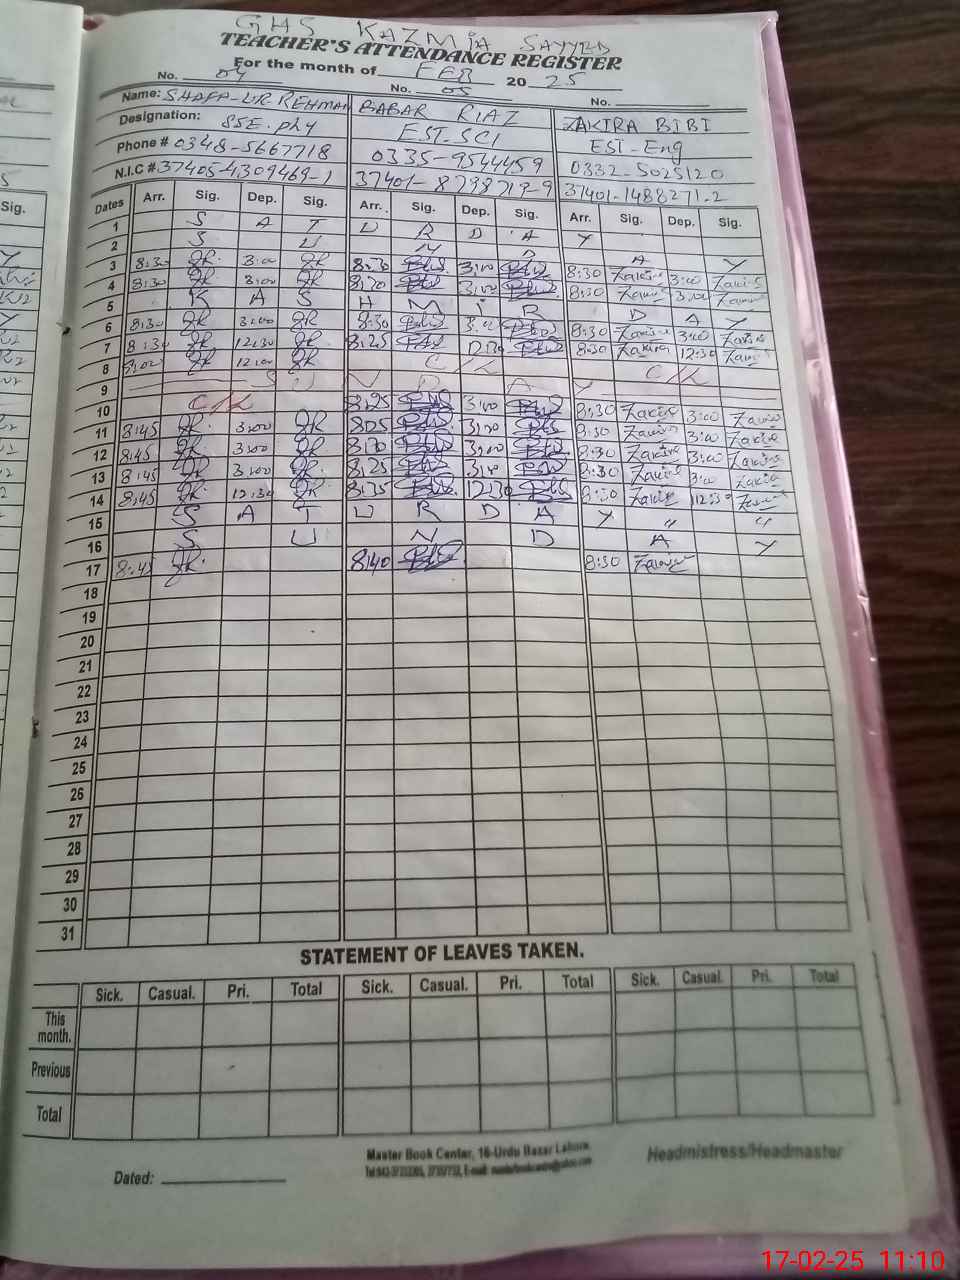 GHS KAZMIA SAYYED
TEACHER'S ATTENDANCE REGISTER
For the month of FEB 20 25
No. 04 No. 05 No.
Name: SHAFA-UR REHMAN BABAR RIAZ ZAKIRA BIBI
Designation: SSE. phy EST-SCI EST-Eng
Phone # 0348-5667718 0335-9544459 0332-5025120
N.I.C # 37405-4309469-1 37401-8798719-9 37401-1488271-2
Dates Arr. Sig. Dep. Sig. Arr. Sig. Dep. Sig. Arr. Sig. Dep. Sig.
1 S A T U R D A Y
2 S U N D A Y
3 8:30 3:00 8:30 3:00 8:30 Zakira 3:00 Zakira
4 8:30 3:00 8:30 3:00 8:30 3:00
5 K A S H M I R D A Y
6 8:30 3:00 8:30 3:00 8:30 Zakira 3:00 Zakira
7 8:30 12:30 8:25 12:30 8:30 Zakira 12:30
8 12:00 C/L C/L
9 S U N D A Y
10 C/L 8:25 3:00 8:30 Zakira 3:00 Zakira
11 8:45 3:00 805 3:00 8:30 Zakira 3:00 Zakira
12 8:45 3:00 8:30 3:00 8:30 Zakira 3:00 Zakira
13 8:45 3:00 8:25 3:00 8:30 Zakira 3:00 Zakira
14 8:45 12:30 8:35 12:30 8:30 Zakira 12:30
15 S A T U R D A Y " "
16 S U N D A Y
17 8:45 8:40 8:30
18
19
20
21
22
23
24
25
26
27
28
29
30
31
STATEMENT OF LEAVES TAKEN.
Sick. Casual. Pri. Total Sick. Casual. Pri. Total Sick. Casual. Pri. Total
This month.
Previous
Total
Master Book Center, 16-Urdu Bazar Lahore.
Headmistress/Headmaster
Dated:
17-02-25 11:10